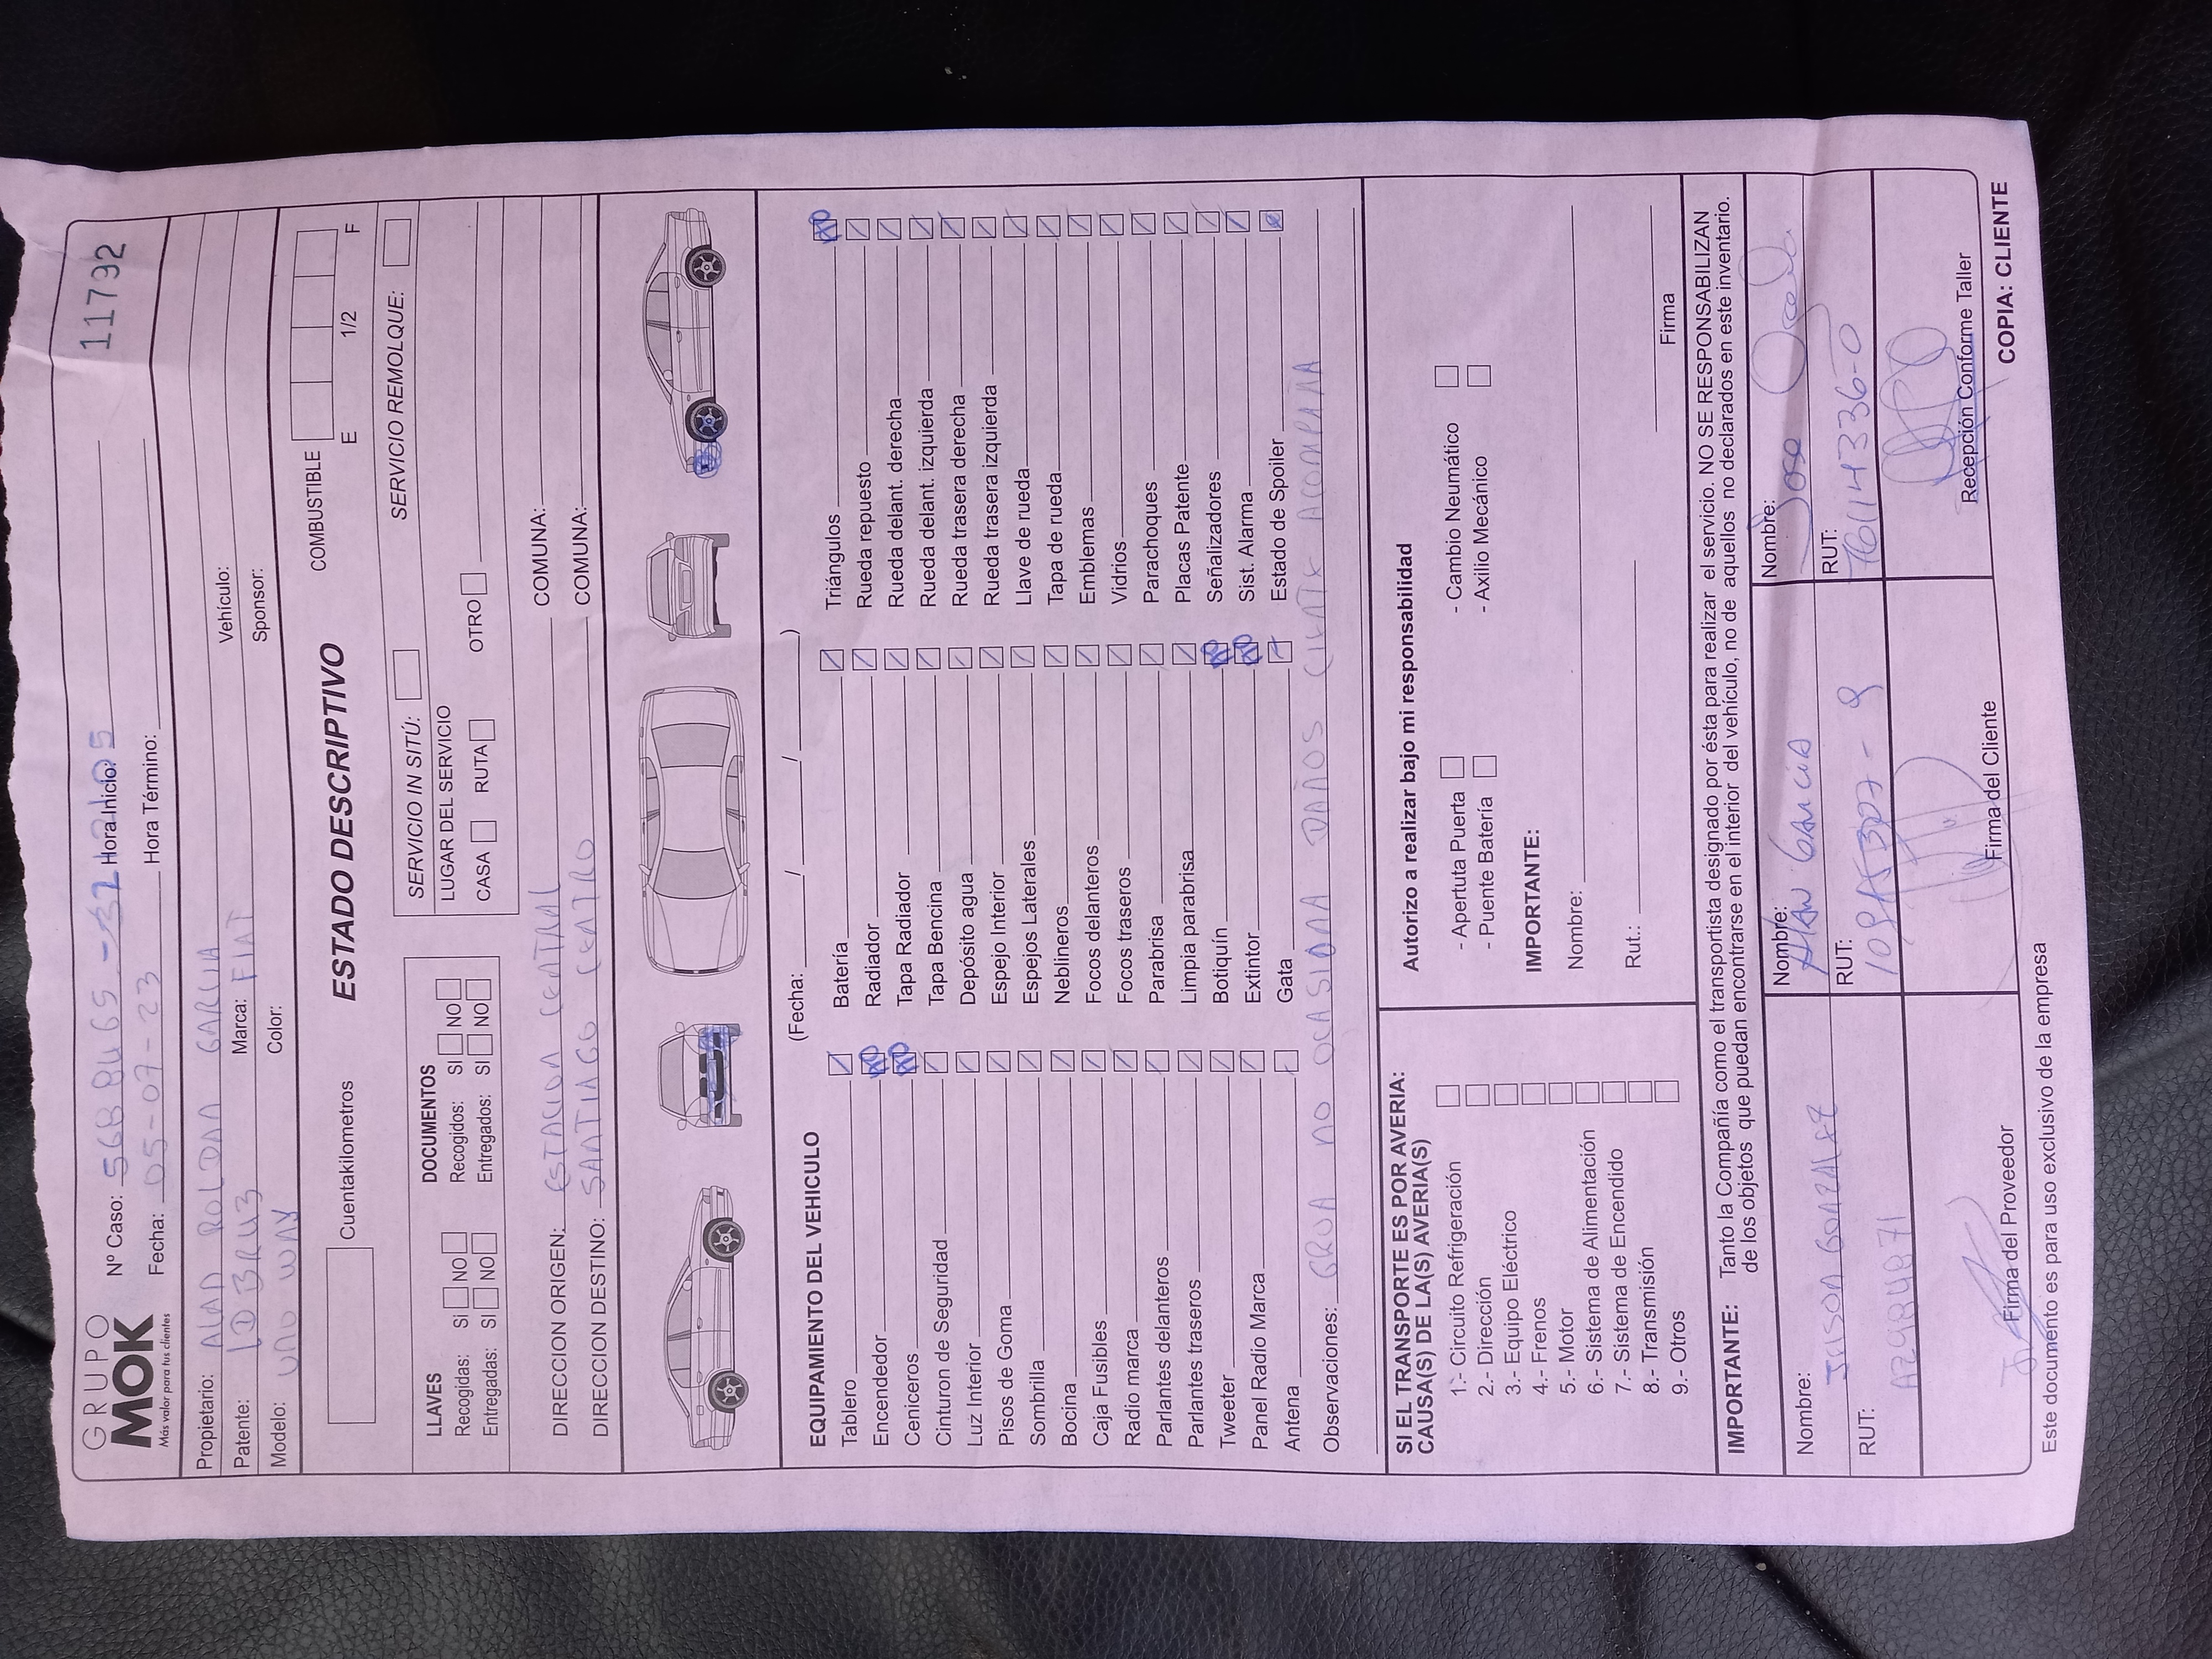 GRUPO
MOK
Más valor para tus clientes
Nº Caso: Hora Inicio:
11792
Fecha: 05-07-23 Hora Término:
Propietario: ALAN ROLDAN GARCIA Vehículo:
Patente: Marca: FIAT Sponsor:
Modelo: UNO WAY Color:
Cuentakilometros
ESTADO DESCRIPTIVO
COMBUSTIBLE
E 1/2 F
LLAVES
Recogidas: SI NO
Entregadas: SI NO
DOCUMENTOS
Recogidos: SI NO
Entregados: SI NO
SERVICIO IN SITÚ: SERVICIO REMOLQUE:
LUGAR DEL SERVICIO
CASA RUTA OTRO
DIRECCION ORIGEN: ESTACION CENTRAL COMUNA:
DIRECCION DESTINO: SANTIAGO CENTRO COMUNA:
EQUIPAMIENTO DEL VEHICULO (Fecha: / / )
Tablero Batería Triángulos NO
Encendedor NO Radiador Rueda repuesto
Ceniceros NO Tapa Radiador Rueda delant. derecha
Cinturon de Seguridad Tapa Bencina Rueda delant. izquierda
Luz Interior Depósito agua Rueda trasera derecha
Pisos de Goma Espejo Interior Rueda trasera izquierda
Sombrilla Espejos Laterales Llave de rueda
Bocina Neblineros Tapa de rueda
Caja Fusibles Focos delanteros Emblemas
Radio marca Focos traseros Vidrios
Parlantes delanteros Parabrisa Parachoques
Parlantes traseros Limpia parabrisa Placas Patente
Tweeter Botiquín NO Señalizadores
Panel Radio Marca Extintor NO Sist. Alarma
Antena Gata Estado de Spoiler
Observaciones: GRUA NO OCASIONA DAÑOS ACOMPAÑA
SI EL TRANSPORTE ES POR AVERIA:
CAUSA(S) DE LA(S) AVERIA(S)
1.- Circuito Refrigeración
2.- Dirección
3.- Equipo Eléctrico
4.- Frenos
5.- Motor
6.- Sistema de Alimentación
7.- Sistema de Encendido
8.- Transmisión
9.- Otros
Autorizo a realizar bajo mi responsabilidad
- Apertuta Puerta - Cambio Neumático
- Puente Batería - Axilio Mecánico
IMPORTANTE:
Nombre:
Rut.:
Firma
IMPORTANTE: Tanto la Compañía como el transportista designado por ésta para realizar el servicio. NO SE RESPONSABILIZAN
de los objetos que puedan encontrarse en el interior del vehículo, no de aquellos no declarados en este inventario.
Nombre: Nombre: Alan Garcia Nombre: Jose
RUT: RUT: RUT:
Firma del Proveedor Firma del Cliente Recepción Conforme Taller
Este documento es para uso exclusivo de la empresa
COPIA: CLIENTE